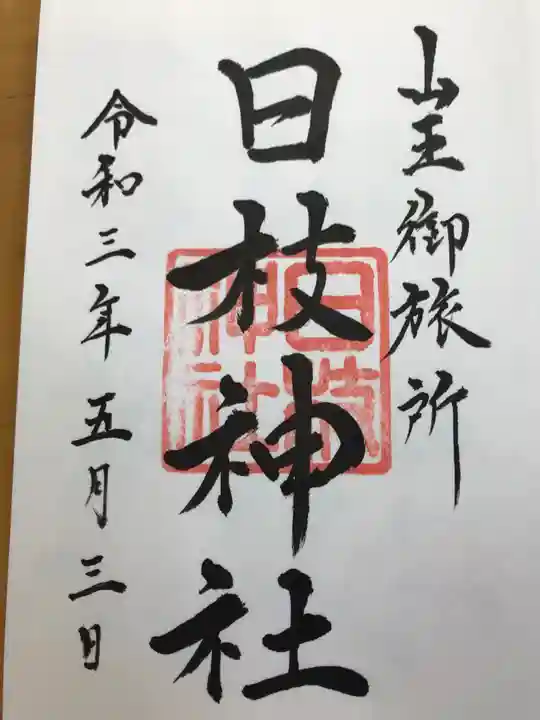 山王御旅所
日枝神社
日枝
神社
令和三年五月三日